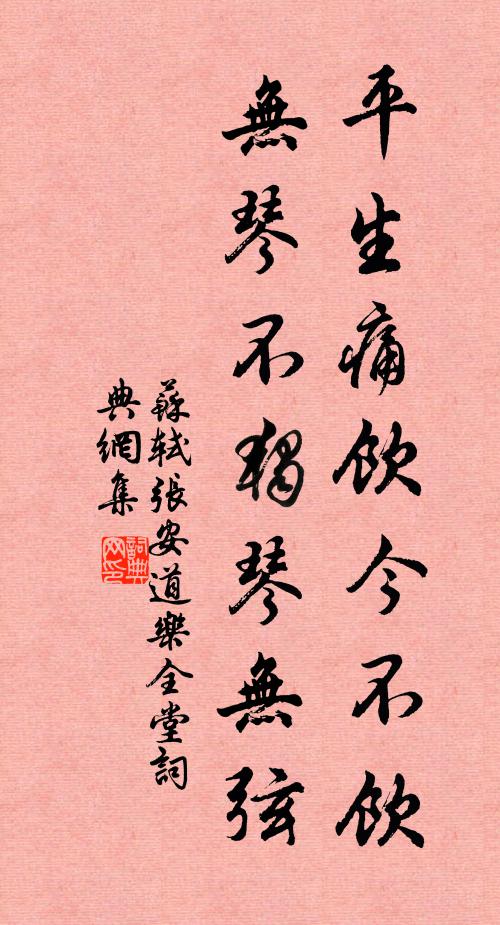 平生痛飲今不飲
無琴不獨琴無弦
蘇軾張安道樂全堂詞
典網集
詞典网印